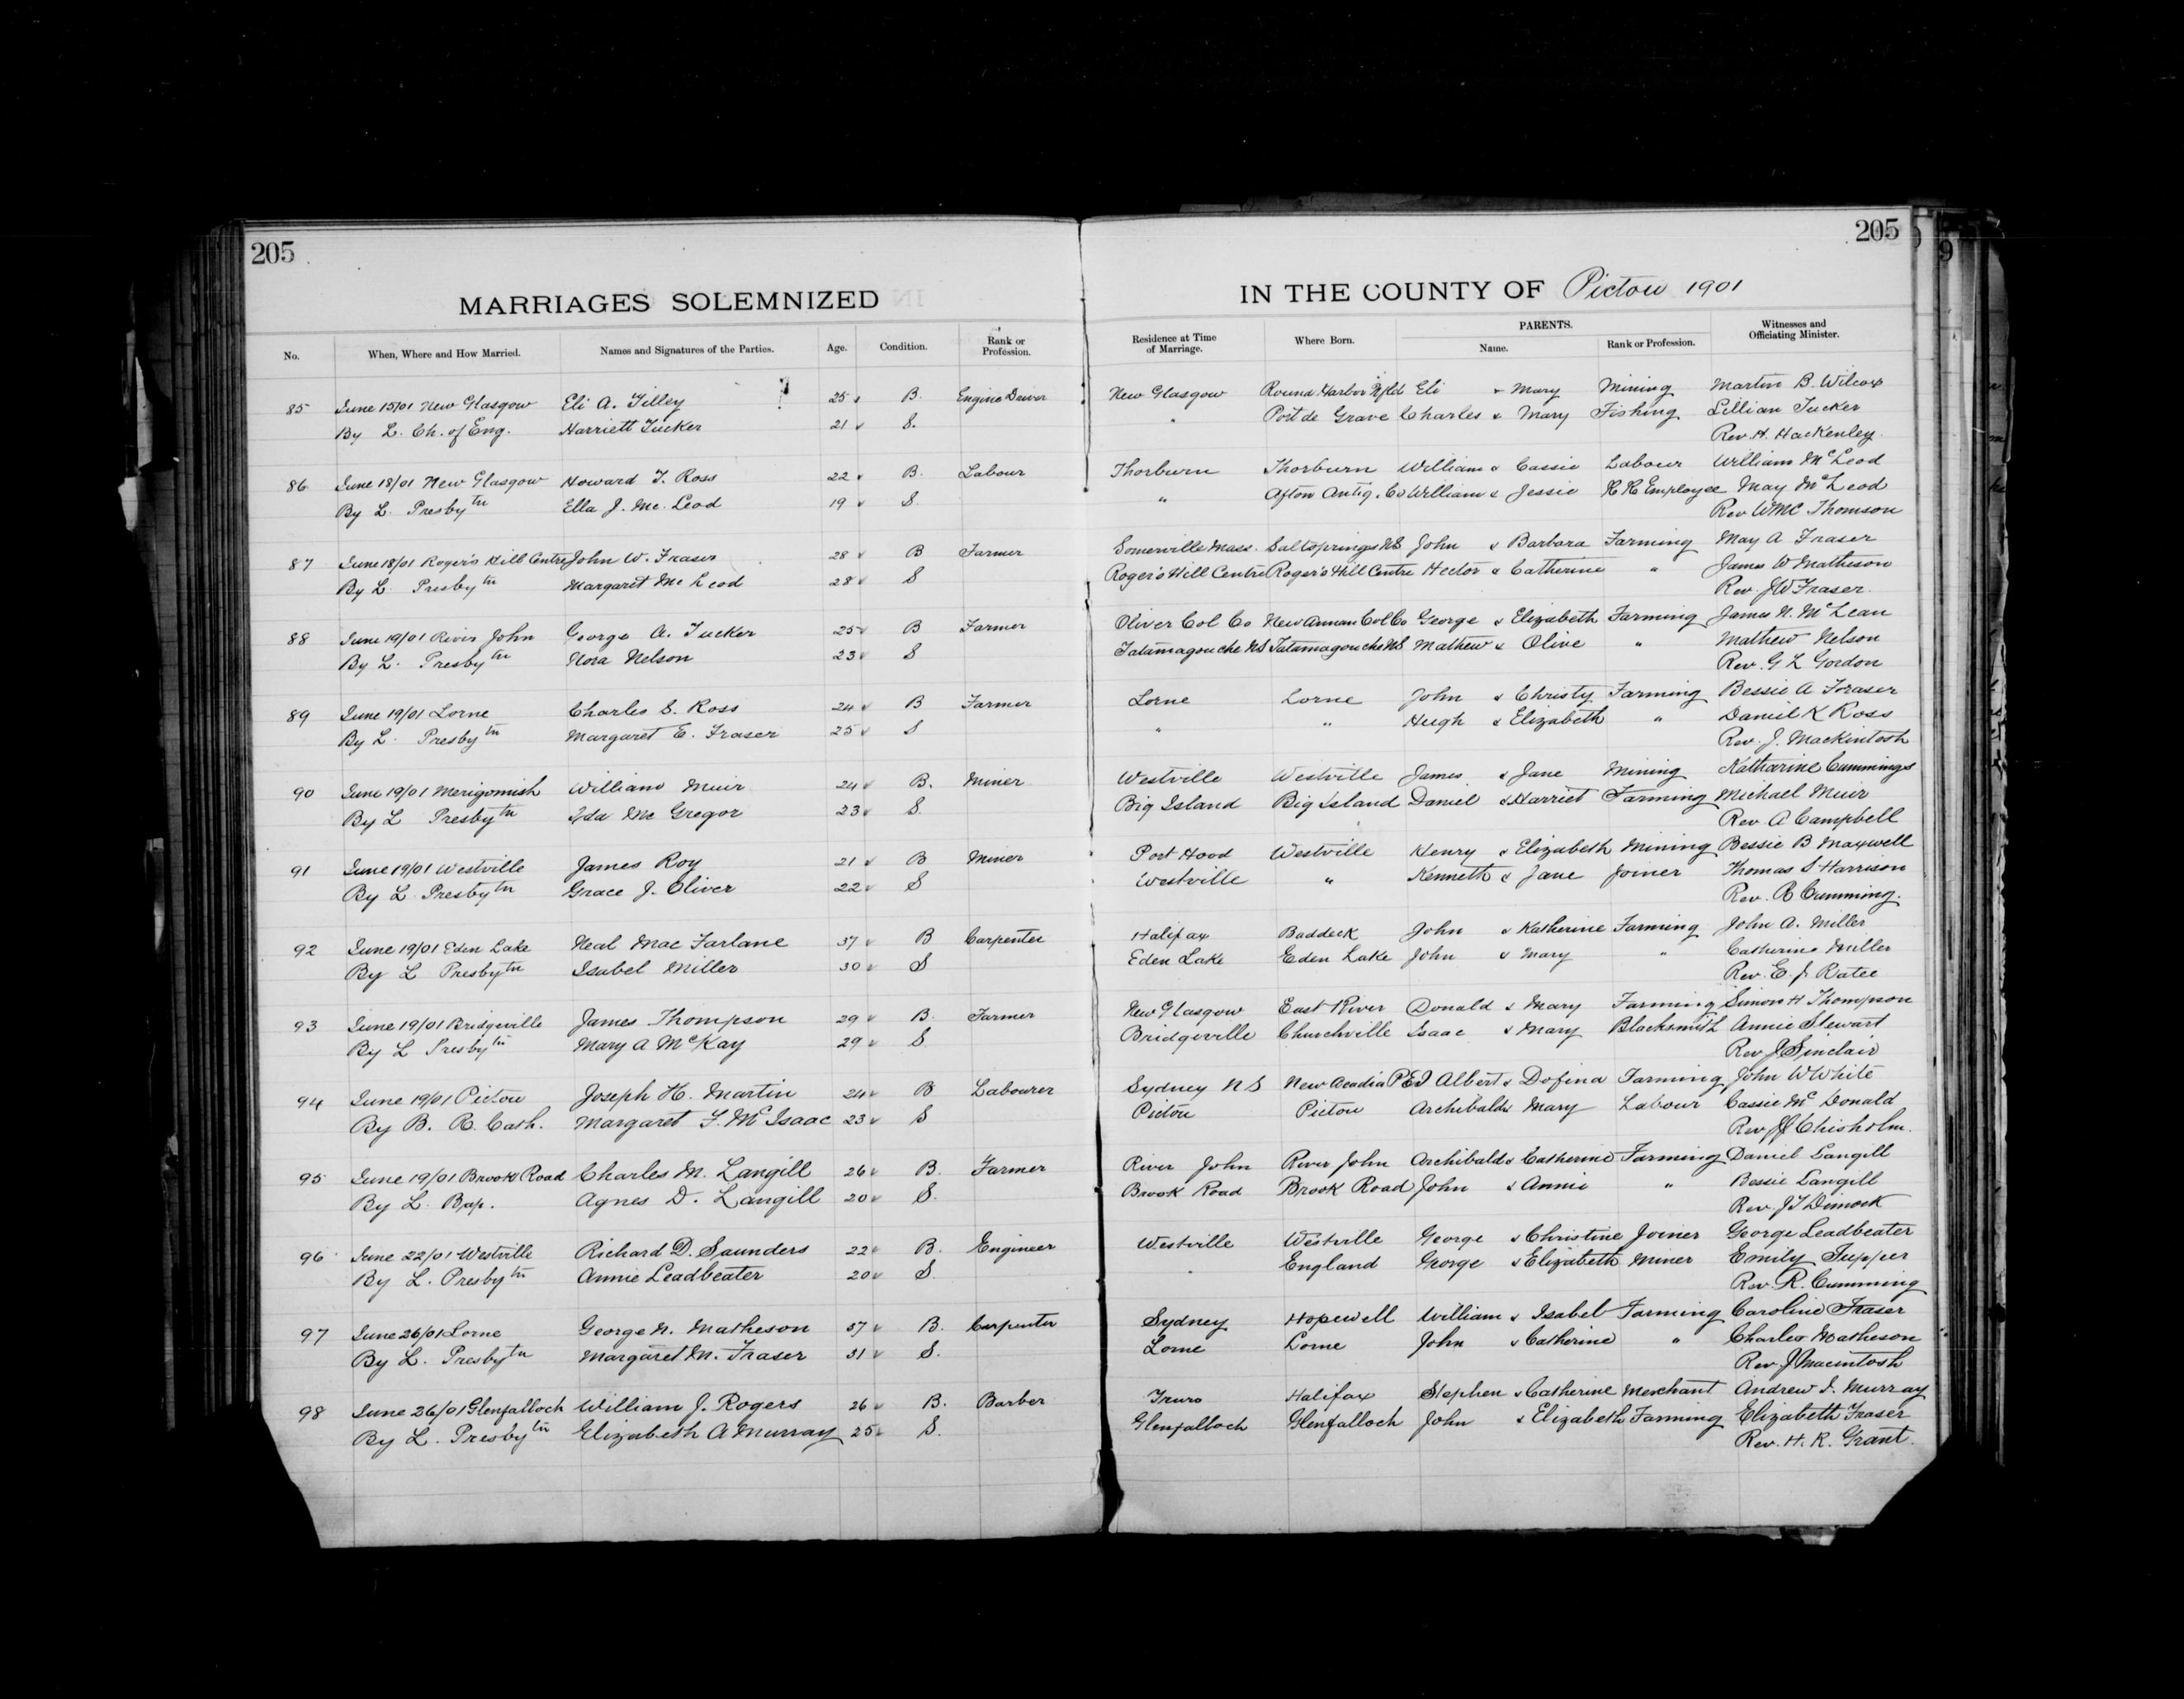 205 205
MARRIAGES SOLEMNIZED IN THE COUNTY OF Pictou 1901
No. When, Where and How Married. Names and Signatures of the Parties. Age. Condition. Rank or Profession. Residence at Time of Marriage. Where Born. PARENTS. Name. Rank or Profession. Witnesses and Officiating Minister.
85 June 15/01 New Glasgow Eli A. Tilley 25 B. Engine Driver New Glasgow Round Harbor Nfld Eli & Mary Mining Martin B. Wilcox
By L. Ch. of Eng. Harriett Tucker 21 S. " Port de Grave Charles & Mary Fishing Lillian Tucker
Rev. H. Hackenley.
86 June 18/01 New Glasgow Howard T. Ross 22 B. Labour Thorburn Thorburn William & Cassie Labour William McLeod
By L. Presbytn Ella J. Mc. Leod 19 S. " Afton Antig. Co William & Jessie R R Employee May McLeod
Rev WMC Thomson
87 June 18/01 Roger's Hill Centre John W. Fraser 28 B Farmer Somerville Mass. Saltsprings NS John & Barbara Farming May A Fraser
By L Presbytn Margaret Mc Leod 28 S Roger's Hill Centre Roger's Hill Centre Hector & Catherine " James W Matheson
Rev. J W Fraser.
88 June 19/01 River John George A. Tucker 25 B Farmer Oliver Col Co New Annan Col Co George & Elizabeth Farming James N. McLean
By L. Presbytn Nora Nelson 23 S Tatamagouche NS Tatamagouche NS Mathew & Olive " Mathew Nelson
Rev. G L Gordon
89 June 19/01 Lorne Charles S. Ross 24 B Farmer Lorne Lorne John & Christy Farming Bessie A Fraser
By L. Presbytn Margaret E. Fraser 25 S " " Hugh & Elizabeth " Daniel K Ross
Rev. J. Mackintosh
90 June 19/01 Merigomish William Muir 24 B. Miner Westville Westville James & Jane Mining Katharine Cummings
By L Presbytn Ida Mc Gregor 23 S. Big Island Big Island Daniel & Harriet Farming Michael Muir
Rev A Campbell
91 June 19/01 Westville James Roy 21 B Miner Port Hood Westville Henry & Elizabeth Mining Bessie B Maxwell
By L Presbytn Grace J. Oliver 22 S Westville " Kenneth & Jane Joiner Thomas S Harrison
Rev. R Cumming.
92 June 19/01 Eden Lake Neal Mac Farlane 37 B Carpenter Halifax Baddeck John & Katherine Farming John A. Miller
By L Presbytn Isabel Miller 30 S Eden Lake Eden Lake John & Mary " Catherine Miller
Rev. E. J. Ratee
93 June 19/01 Bridgeville James Thompson 29 B. Farmer New Glasgow East River Donald & Mary Farming Simon H Thompson
By L Presbytn Mary A McKay 29 S Bridgeville Churchville Isaac & Mary Blacksmith Annie Stewart
Rev J Sinclair
94 June 19/01 Pictou Joseph H. Martin 24 B Labourer Sydney N S New Acadia PEI Albert & Dofina Farming John W White
By B. R. Cath. Margaret F. McIsaac 23 S Pictou Pictou Archibald & Mary Labour Cassie McDonald
Rev JJ Chisholm.
95 June 19/01 Brook Road Charles M. Langill 26 B. Farmer River John River John Archibald & Catherine Farming Daniel Langill
By L. Bap. Agnes D. Langill 20 S. Brook Road Brook Road John & Annie " Bessie Langill
Rev. J T Dimock
96 June 22/01 Westville Richard D. Saunders 22 B. Engineer Westville Westville George & Christine Joiner George Leadbeater
By L. Presbytn Annie Leadbeater 20 S. " England George & Elizabeth Miner Emily Tupper
Rev. R. Cumming
97 June 26/01 Lorne George N. Matheson 37 B. Carpenter Sydney Hopewell William & Isabel Farming Caroline Fraser
By L. Presbytn Margaret M. Fraser 31 S. Lorne Lorne John & Catherine " Charles Matheson
Rev. J Macintosh
98 June 26/01 Glenfalloch William J. Rogers 26 B. Barber Truro Halifax Stephen & Catherine Merchant Andrew I. Murray
By L. Presbytn Elizabeth A Murray 25 S. Glenfalloch Glenfalloch John & Elizabeth Farming Elizabeth Fraser
Rev. H. R. Grant.